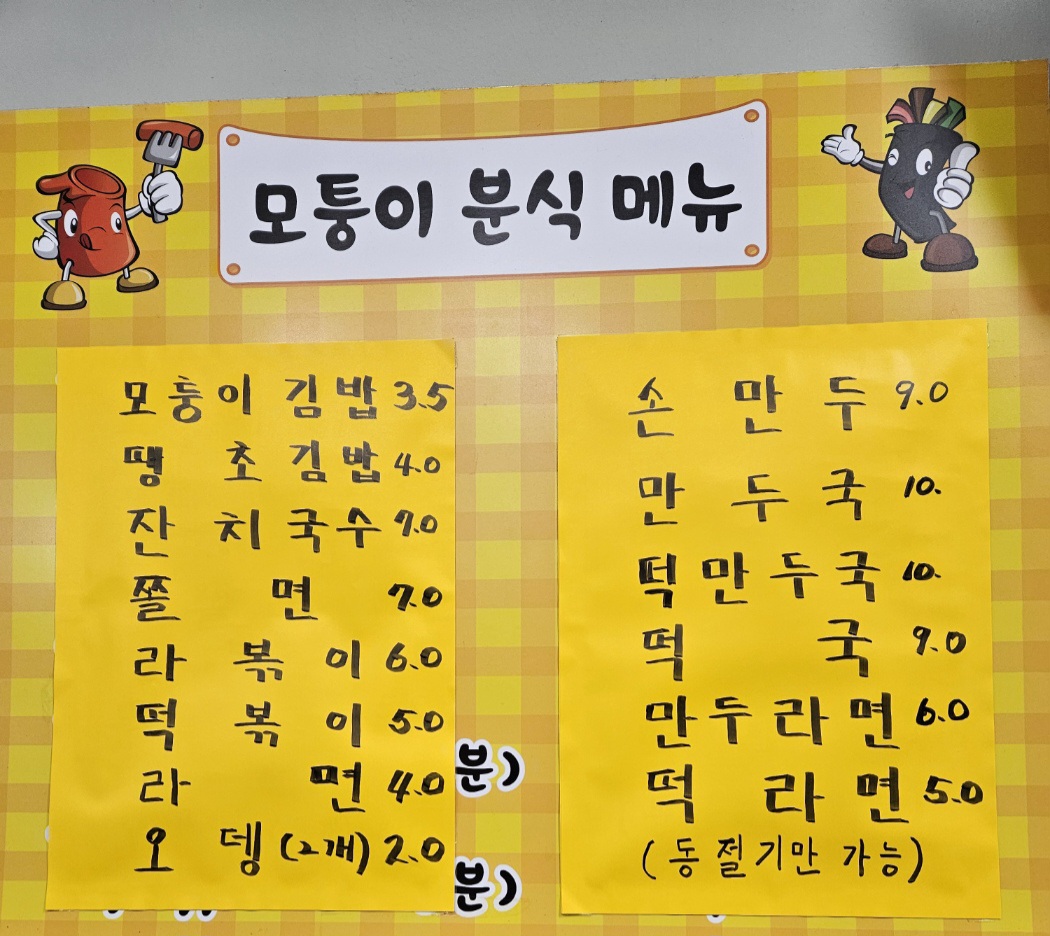 모퉁이 분식 메뉴
모퉁이 김밥 3.5
땡초김밥 4.0
잔치국수 7.0
쫄면 7.0
라볶이 6.0
떡볶이 5.0
라면 4.0
오뎅 (2개) 2.0
분)
분)
손만두 9.0
만두국 10.
떡만두국 10.
떡국 9.0
만두라면 6.0
떡라면 5.0
(동절기만 가능)